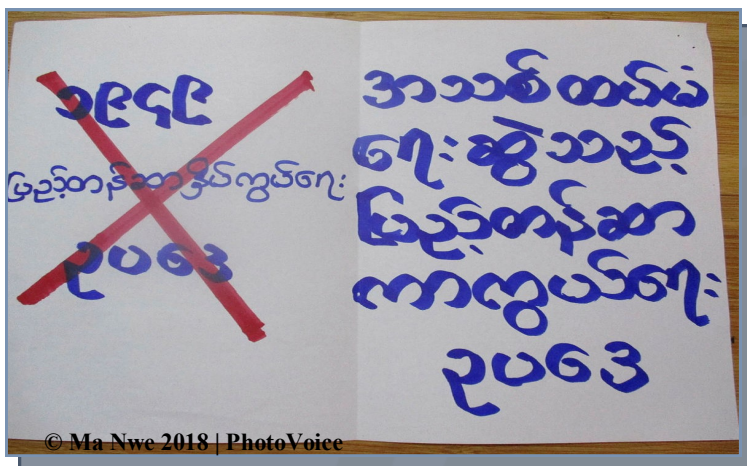 ၁၉၄၉
ပြည့်တန်ဆာနှိပ်ကွပ်ရေး
ဥပဒေ
အသစ်ထပ်မံ
ရေးဆွဲသည့်
ပြည့်တန်ဆာ
ကာကွယ်ရေး
ဥပဒေ
© Ma Nwe 2018 | PhotoVoice